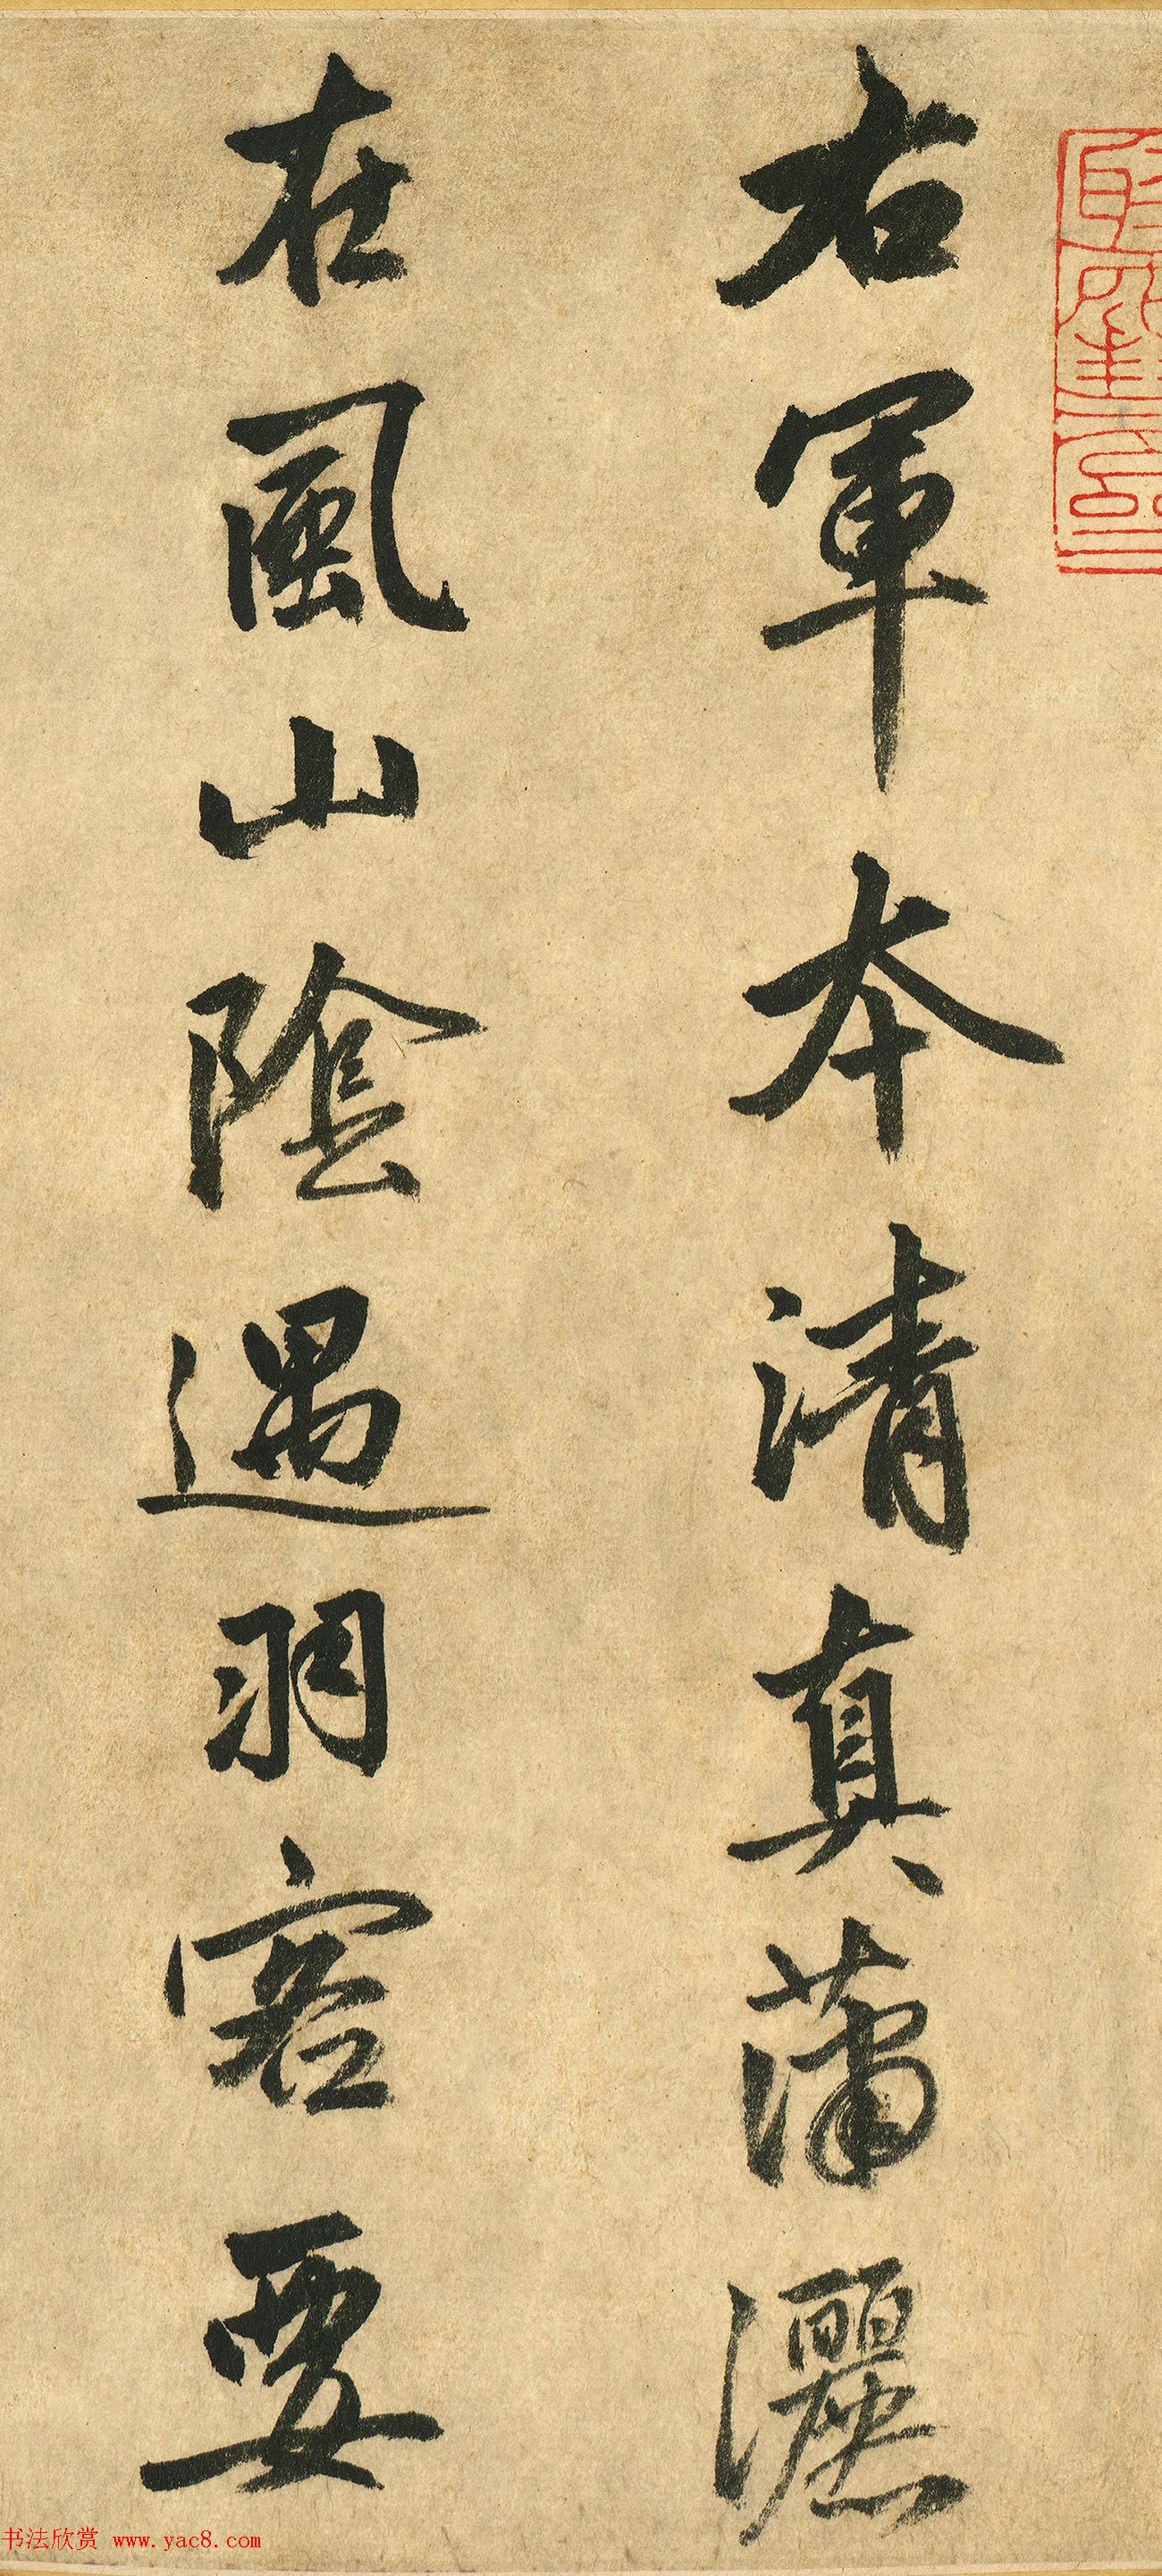 右軍本清真瀟灑
在風山陰遇羽客要
书法欣赏 www.yac8.com